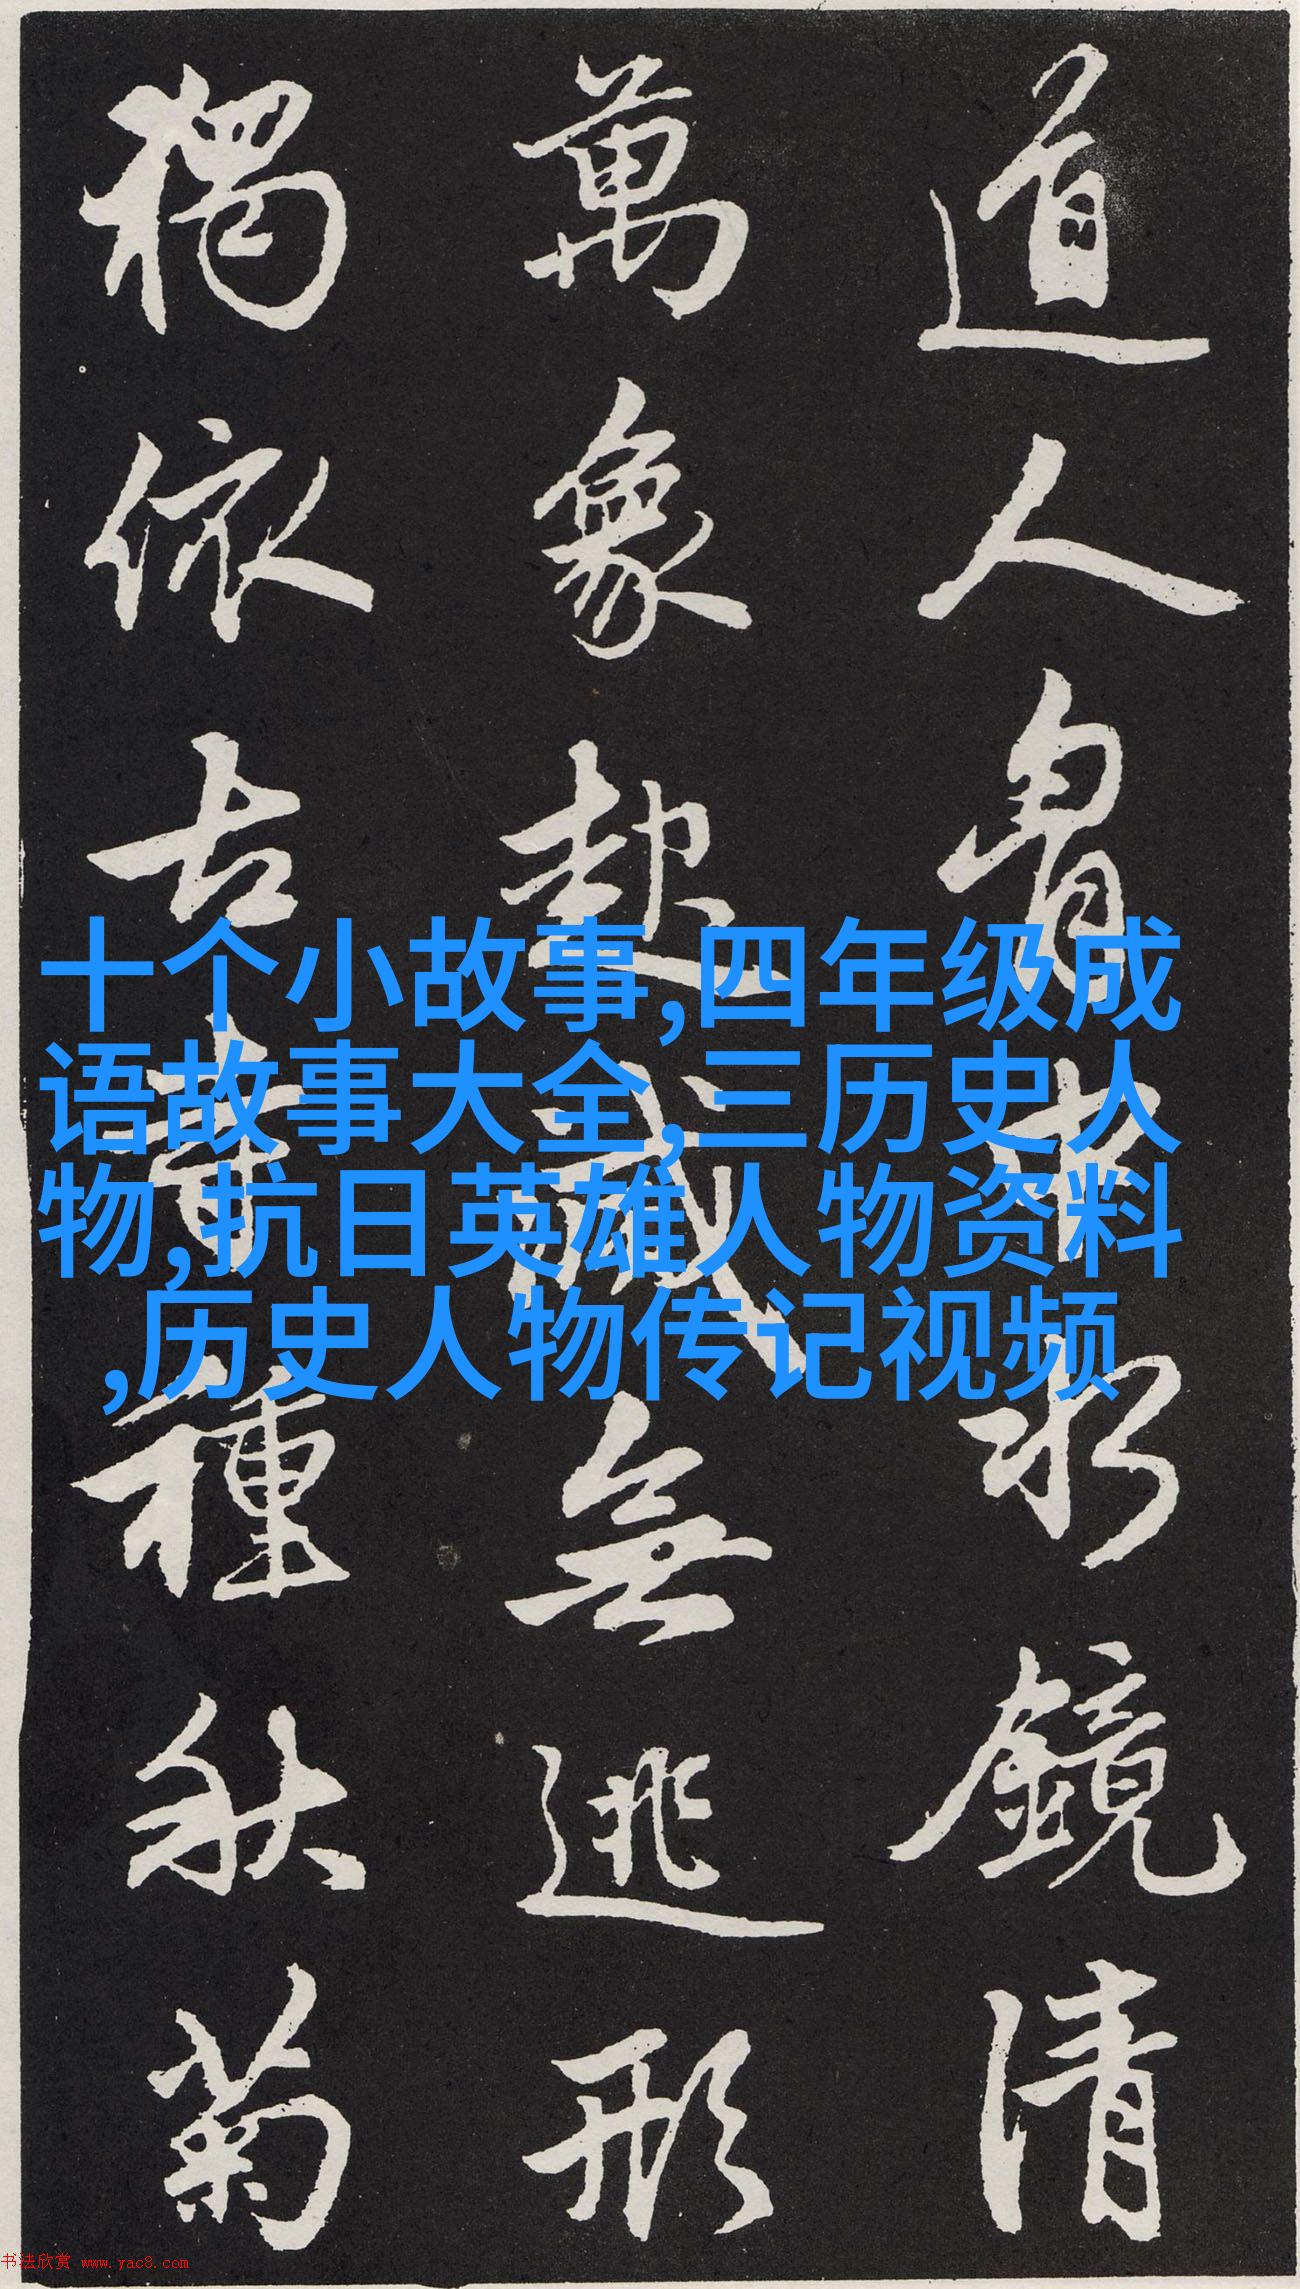 道人胷中水鏡清
萬象起滅無逃形
獨依古寺種秋菊
十个小故事,四年级成
语故事大全,三历史人
物,抗日英雄人物资料
,历史人物传记视频
书法欣赏 www.yac8.com